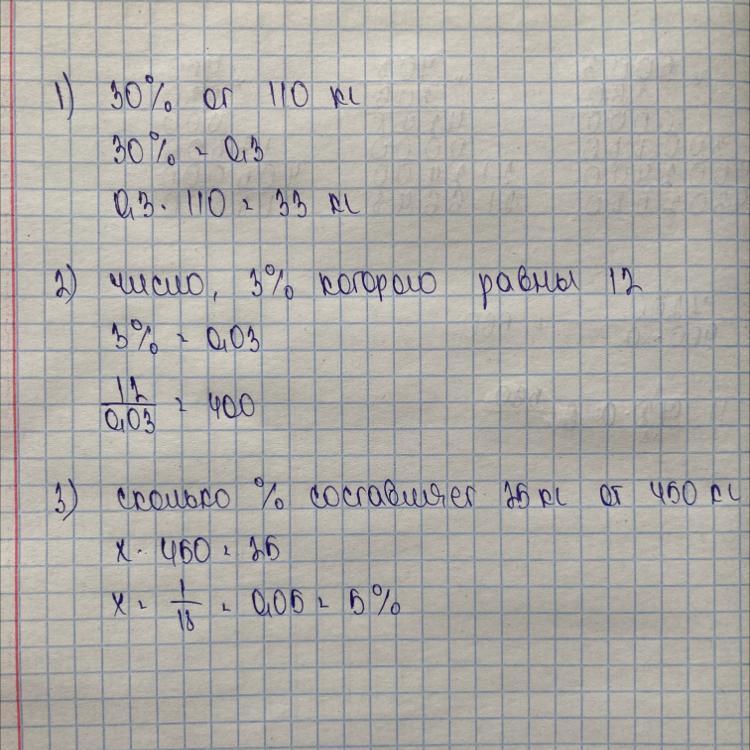 1) 30% от 110 кг
30% = 0,3
0,3 · 110 = 33 кг
2) число, 3% которого равны 12
3% = 0,03
12/0,03 = 400
3) сколько % составляет 25 кг от 450 кг
x · 450 = 25
x = 1/18 = 0,05 = 5%